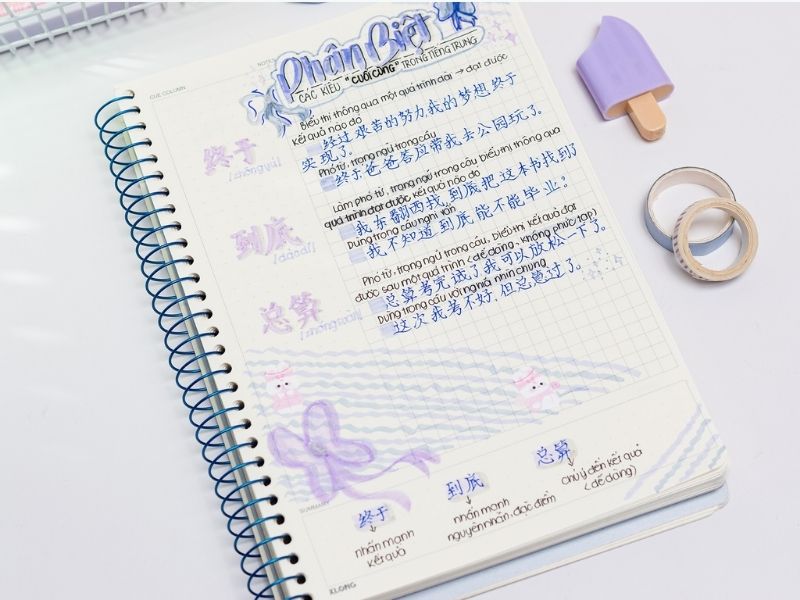 Phân Biệt
CÁC KIỂU "CUỐI CÙNG" TRONG TIẾNG TRUNG
CUE COLUMN
Biểu thị thông qua một quá trình dài → đạt được
kết quả nào đó
经过艰苦的努力,我的梦想终于
实现了。
终于
[zhōngyú]
Phó từ, trạng ngữ trong câu
终于爸爸答应带我去公园玩了。
Làm phó từ, trạng ngữ trong câu biểu thị thông qua
quá trình đạt được kết quả nào đó
我东翻西找,到底把这本书找到了
到底
[dàodǐ]
Dùng trong câu nghi vấn
我不知道到底能不能毕业?
Phó từ, trạng ngữ trong câu, biểu thị kết quả đạt
được sau một quá trình (dễ dàng - không phức tạp)
总算考完试了我可以放松一下了。
总算
[zhǒngsuàn]
Dùng trong câu với nghĩa nhìn chung
这次我考不好,但总算过了。
SUMMARY
终于
nhấn mạnh
kết quả
到底
nhấn mạnh
nguyên nhân, đặc điểm
总算
chú ý đến kết quả
(dễ dàng)
KLONG